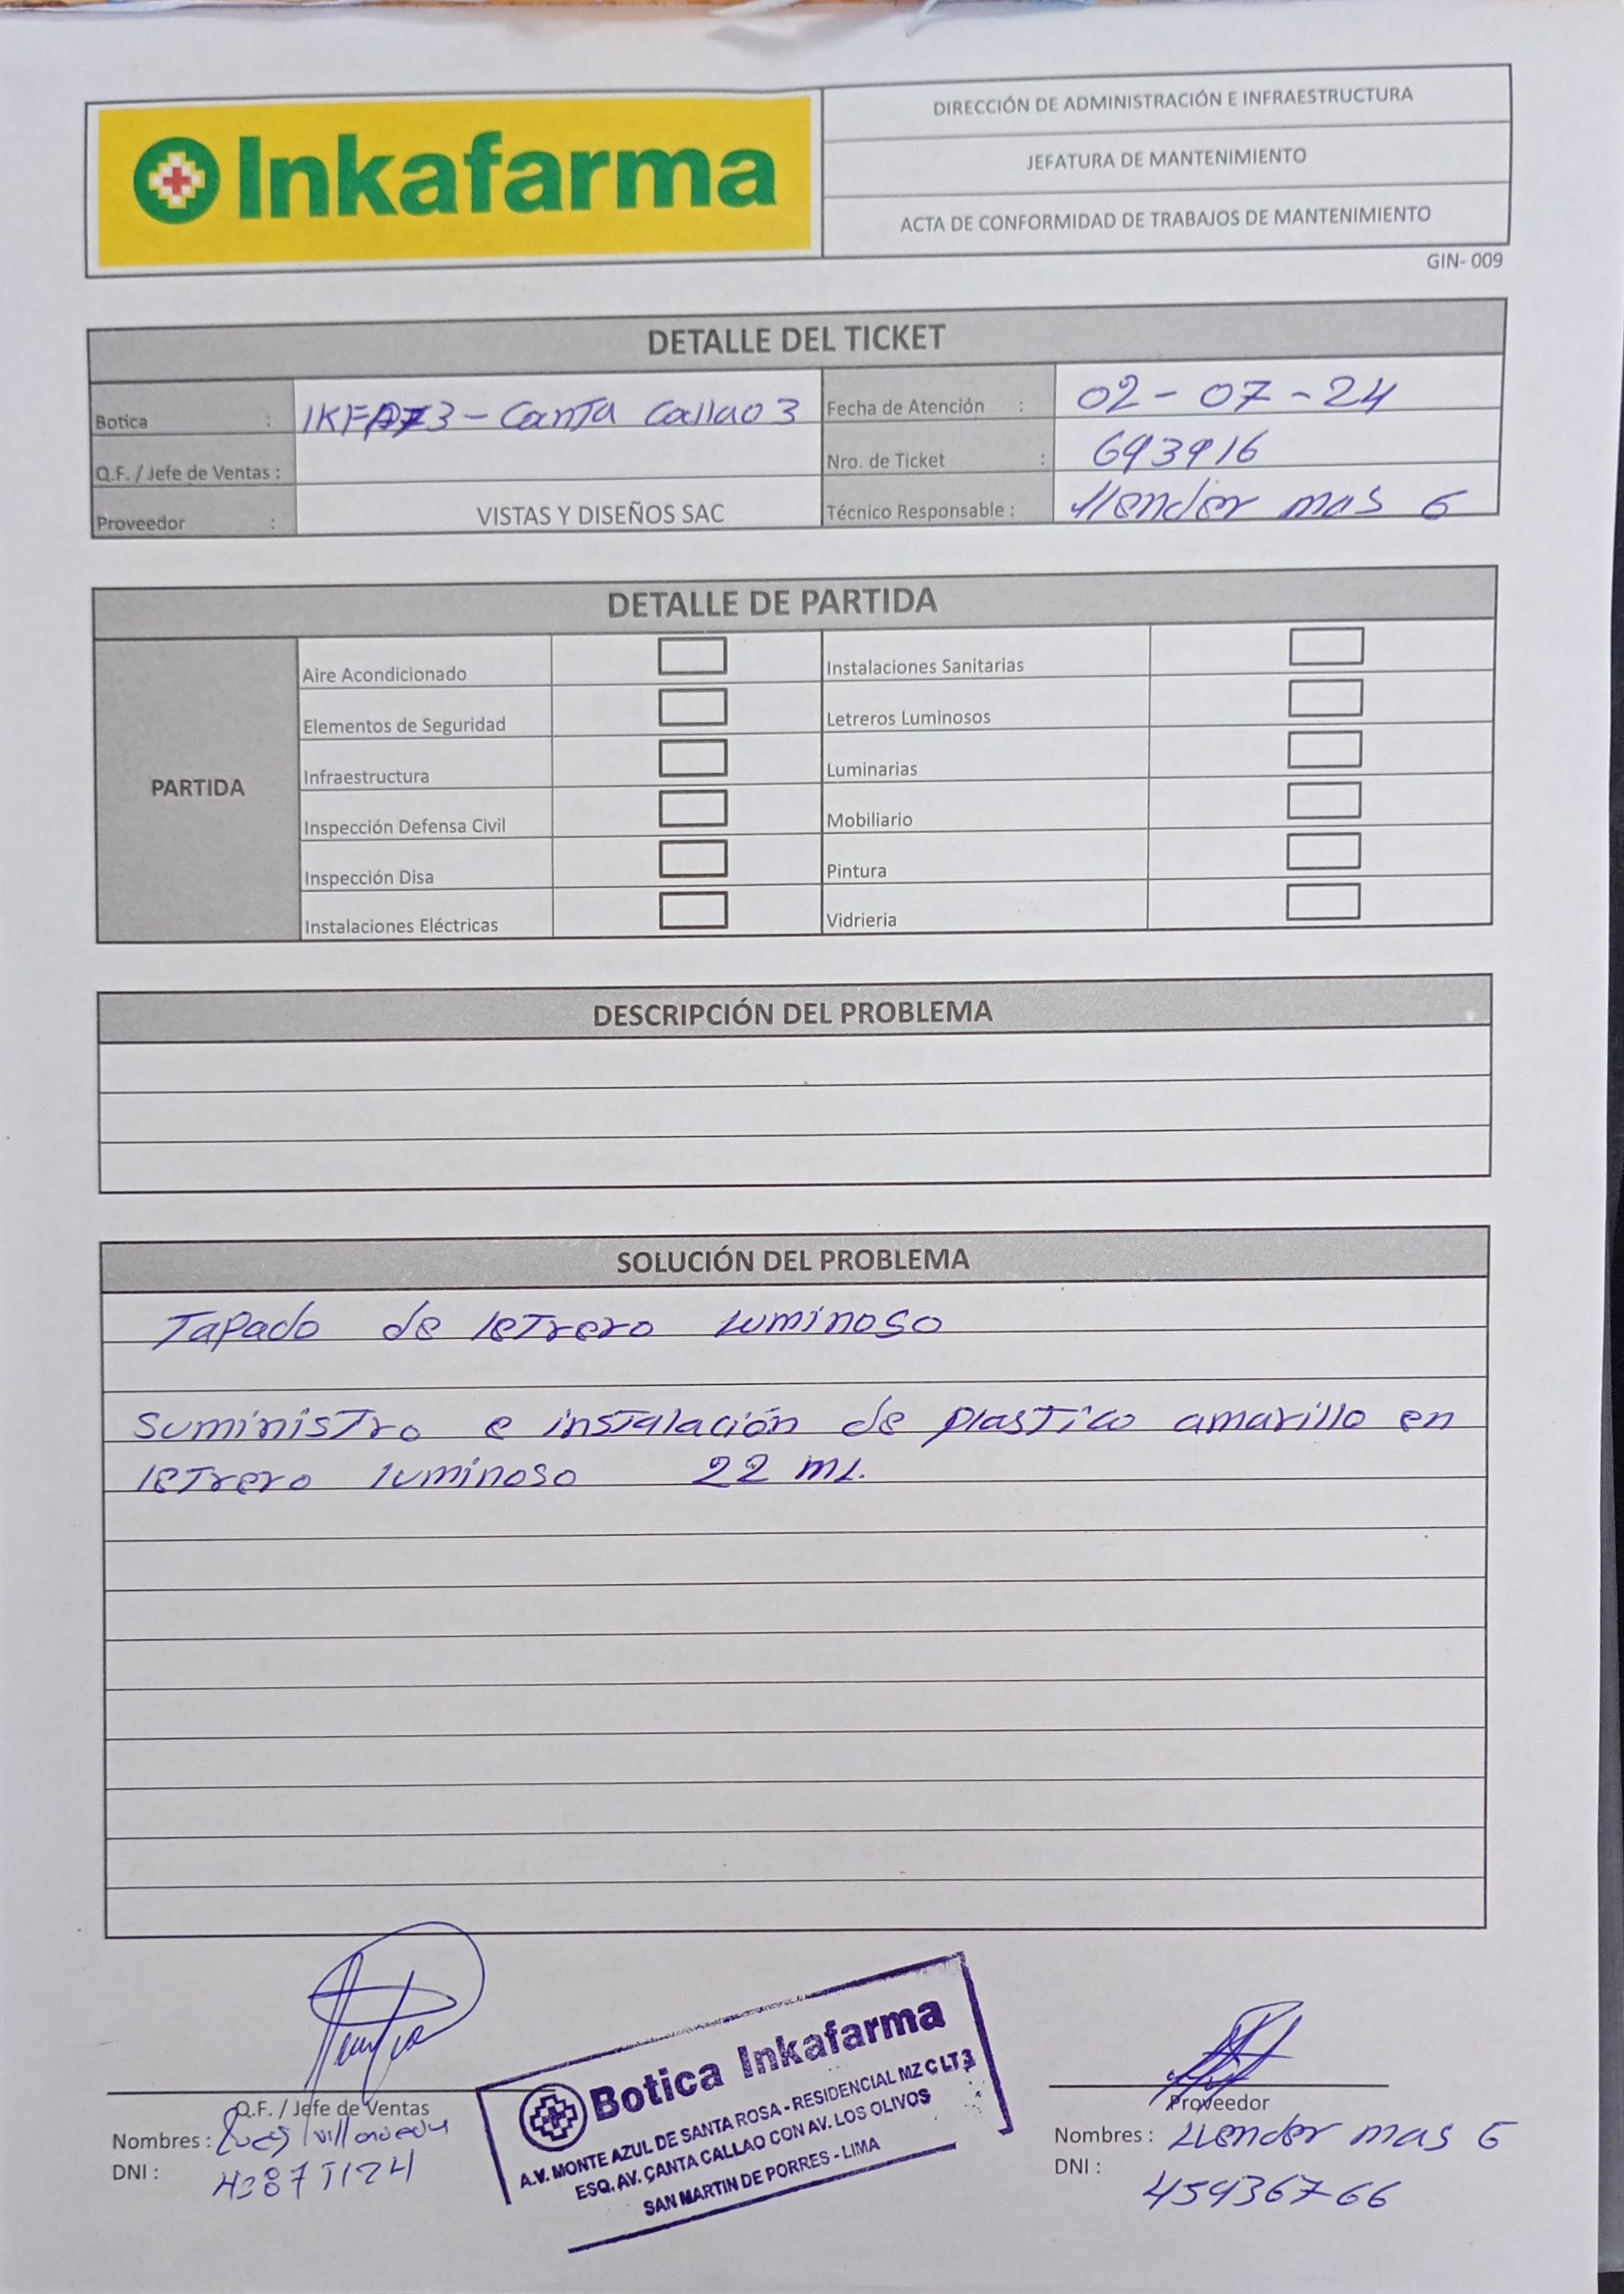 Inkafarma
DIRECCIÓN DE ADMINISTRACIÓN E INFRAESTRUCTURA
JEFATURA DE MANTENIMIENTO
ACTA DE CONFORMIDAD DE TRABAJOS DE MANTENIMIENTO
GIN- 009
DETALLE DEL TICKET
Botica : - Canta Callao 3 Fecha de Atención : 02-07-24
Q.F. / Jefe de Ventas : Nro. de Ticket : 693916
Proveedor : VISTAS Y DISEÑOS SAC Técnico Responsable : mas G
DETALLE DE PARTIDA
PARTIDA
Aire Acondicionado Instalaciones Sanitarias
Elementos de Seguridad Letreros Luminosos
Infraestructura Luminarias
Inspección Defensa Civil Mobiliario
Inspección Disa Pintura
Instalaciones Eléctricas Vidrieria
DESCRIPCIÓN DEL PROBLEMA
SOLUCIÓN DEL PROBLEMA
Tapado de letrero luminoso
Suministro e instalación de plastico amarillo en
letrero luminoso 22 ML.
Botica Inkafarma
A.V. MONTE AZUL DE SANTA ROSA - RESIDENCIAL MZ C LT 3
ESQ. AV. CANTA CALLAO CON AV. LOS OLIVOS
SAN MARTIN DE PORRES - LIMA
Q.F. / Jefe de Ventas
Nombres :
DNI :
Proveedor
Nombres : mas G
DNI :
45936766